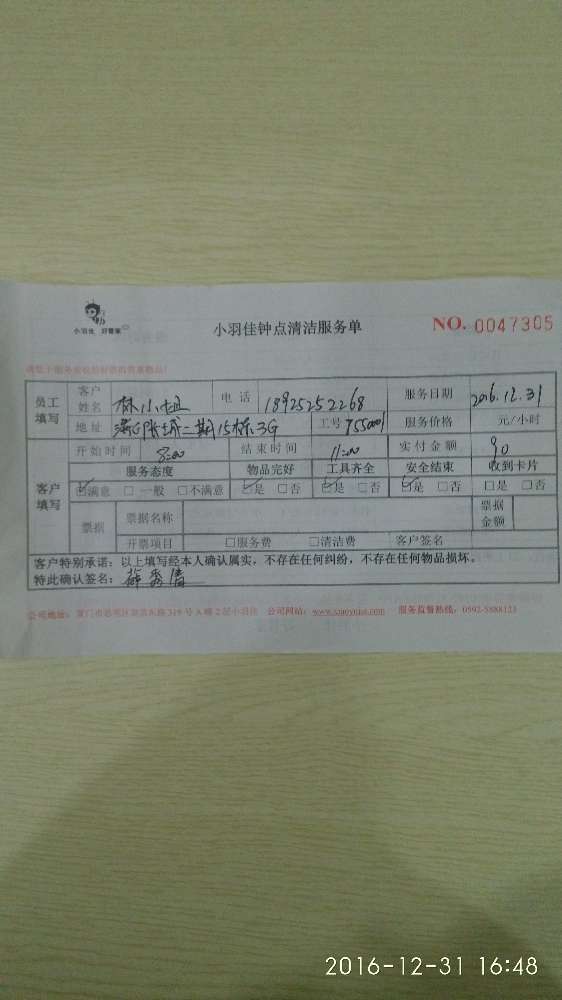 小羽佳 好管家
小羽佳钟点清洁服务单
NO. 0047305
员工填写
客户姓名 林小姐 电话 18925252268 服务日期 2016.12.31
地址 二期15栋3G 工号 7550001 服务价格 元/小时
客户填写
开始时间 8:00 结束时间 11:00 实付金额 90
服务态度 物品完好 工具齐全 安全结束 收到卡片
☑满意 □一般 □不满意 ☑是 □否 ☑是 □否 ☑是 □否 □是 □否
票据 票据名称 票据金额
开票项目 □服务费 □清洁费 客户签名
客户特别承诺：以上填写经本人确认属实，不存在任何纠纷，不存在任何物品损坏。
特此确认签名：薛秀清
公司地址：厦门市 319号A幢2层小羽佳 公司网站： 服务监督热线：0592-5888123
2016-12-31 16:48